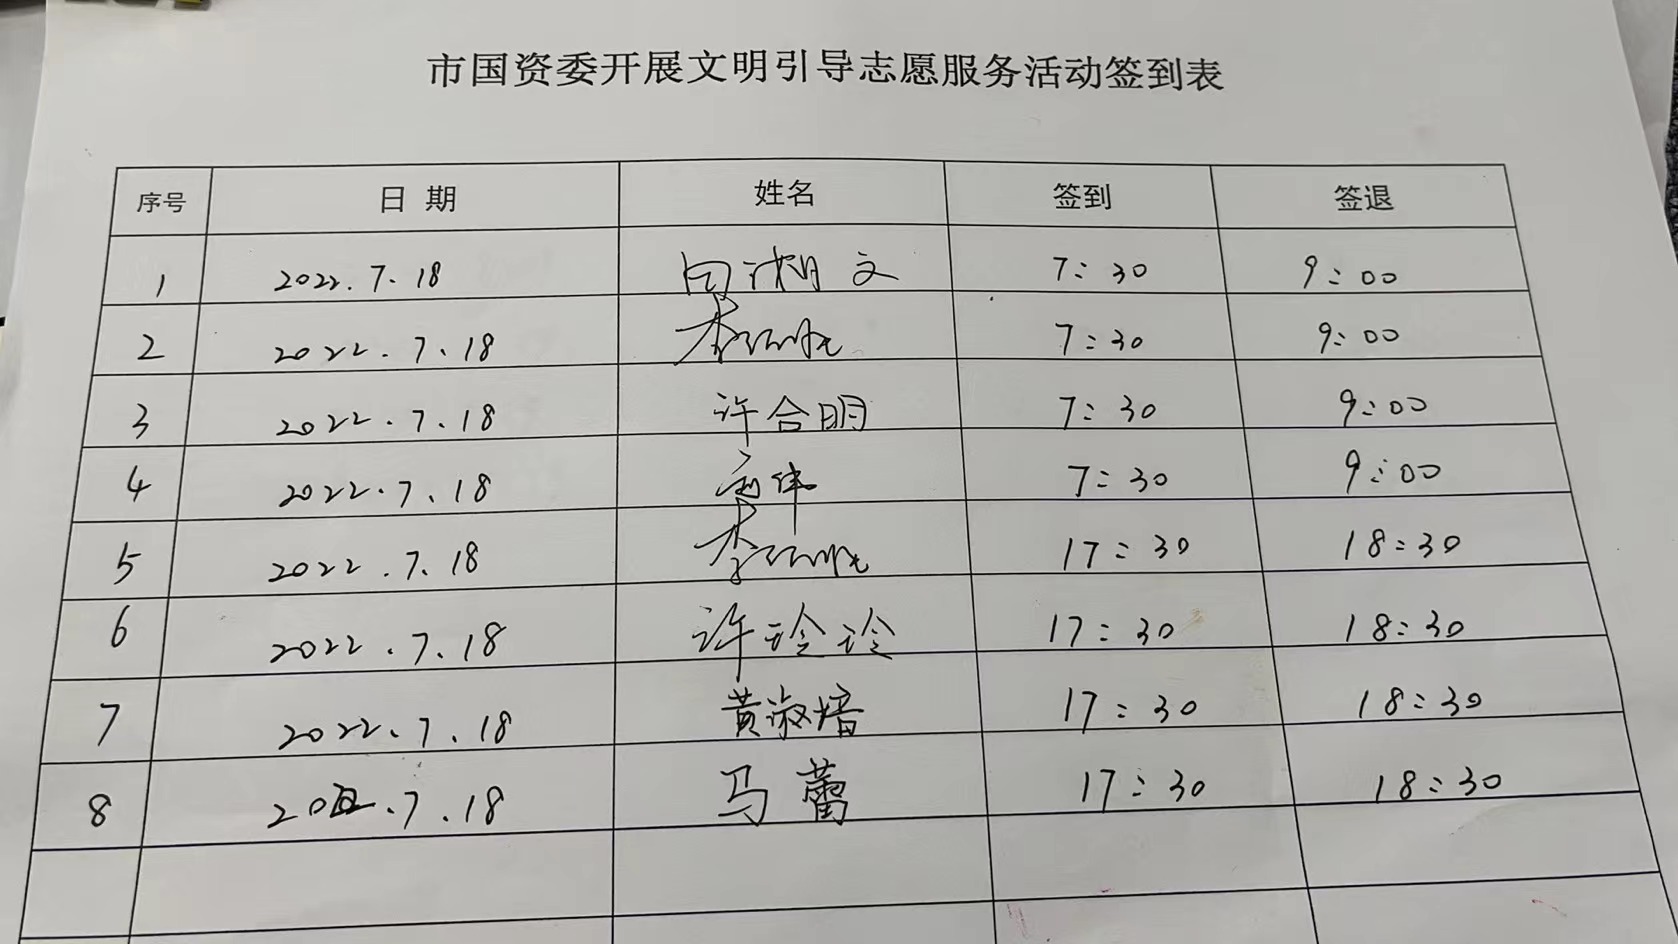 市国资委开展文明引导志愿服务活动签到表
序号 日期 姓名 签到 签退
1 2022.7.18 文 7:30 9:00
2 2022.7.18 李 7:30 9:00
3 2022.7.18 许合明 7:30 9:00
4 2022.7.18 7:30 9:00
5 2022.7.18 李 17:30 18:30
6 2022.7.18 许玲玲 17:30 18:30
7 2022.7.18 黄淑 17:30 18:30
8 2022.7.18 马蕾 17:30 18:30